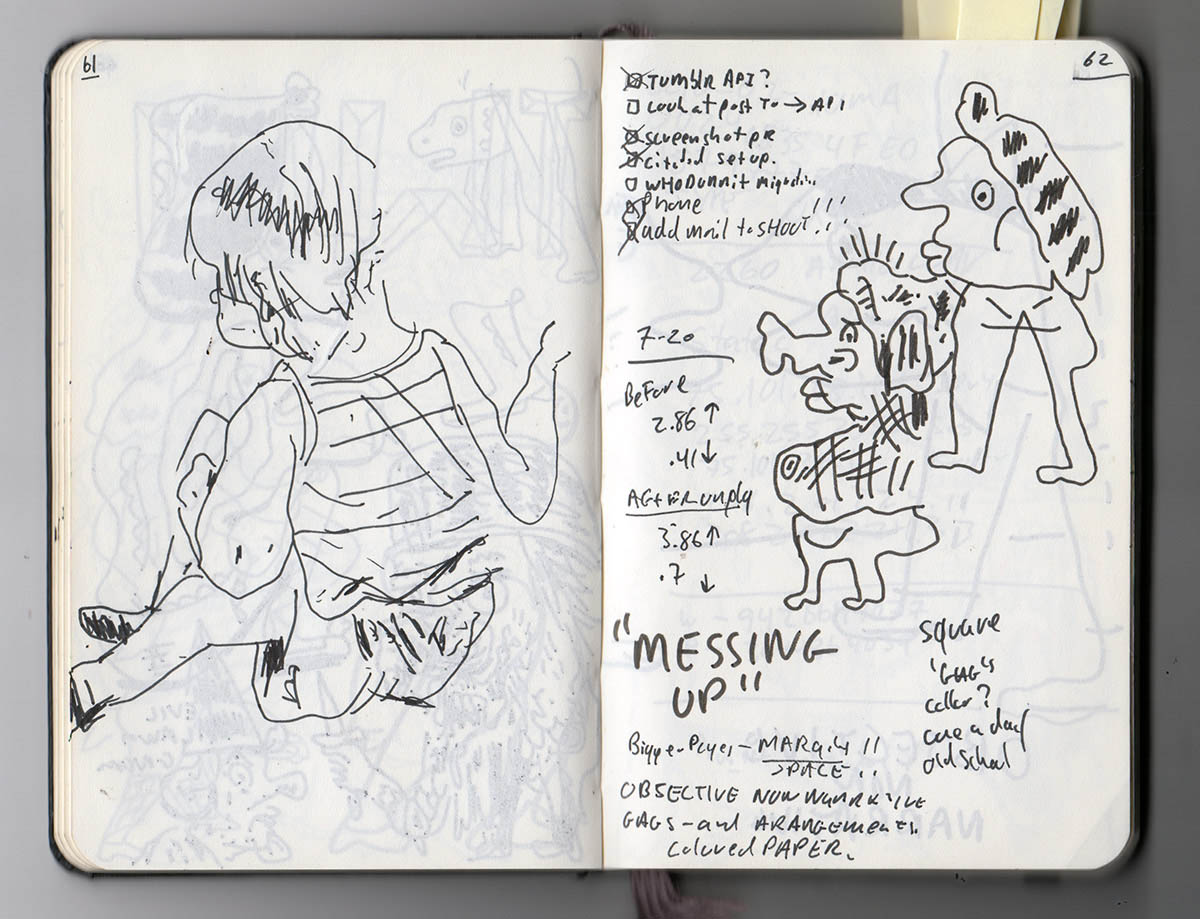 61
62
Tumblr API?
Look at post To → API
screenshot pre
setup.
WHODUNNIT
Phone !!!
add mail to SHOUT!!
7-20
BeFore
2.86 ↑
.41 ↓
AFtER unply
3.86 ↑
.7 ↓
"MESSING
UP"
square
'GAG's
color?
one a day
old School
Bigger Pages - MARgin !!
SPACE !!
OBSECTIVE NONNARRATIVE
GAGS - and ARANGEMENTS.
Colored PAPER.